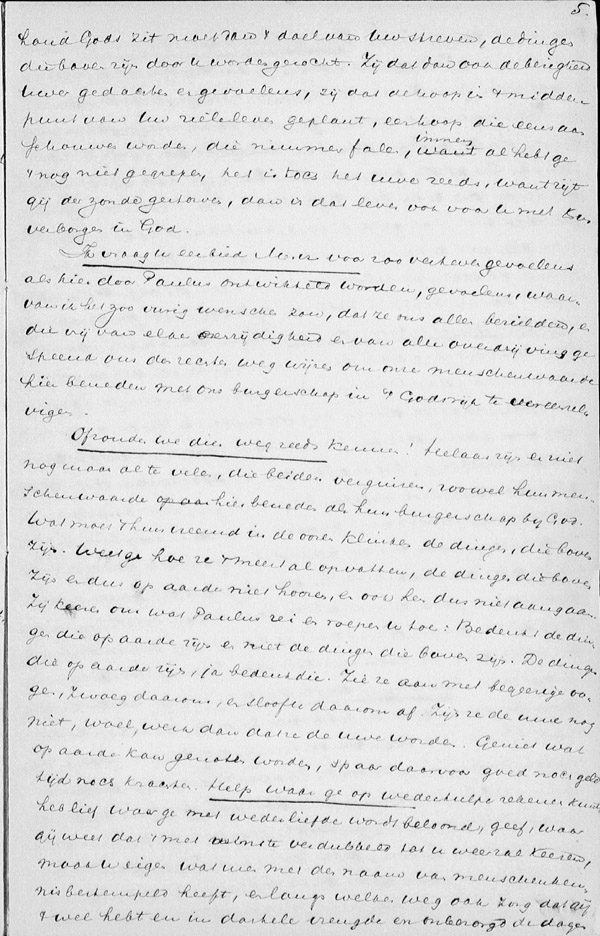 5.
hand Gods zit moet dan 't doel van Uw streven, de dingen
die boven zijn door U worden gezocht. Zij dat dan ook de bezigheid
Uwer gedachten en gevoelens, zij dat de hoop in 't midden
punt van Uw zieleleven geplant, een hoop die eens aan
schouwen worden, die nimmer falen, immers al hebt ge
't nog niet gegrepen, het is toch het uwe reeds, want zijt
gij der zonde gestorven, dan is dat leven ook voor U met
verborgen in God.
Ik vraag U eerbied M. voor zoo verheven gevoelens
als hier door Paulus ontwikkeld worden, gevoelens, waar-
van ik het zoo vurig wenschen zou, dat ze ons allen bezielden, en
die vrij van elke en van alle overdrijving ge
speend ons den rechten weg wijzen om onze menschenwaarde
hier beneden met ons burgerschap in 't Godsrijk te vereenzel-
vigen.
Ofzouden we dien weg reeds kennen! Helaas zijn er niet
nog maar al te velen, die beiden verguizen, zoowel hun men-
schenwaarde hier beneden als hun burgerschap bij God.
Wat moet 't hun vreemd in de ooren klinken de dingen, die boven
zijn. Weet ge hoe ze 't meest al opvatten, de dingen die boven
zijn en dus op aarde niet hooren, en ook hen dus niet aangaan.
Zij keeren om wat Paulus zei en roepen U toe: Bedenkt de din-
gen die op aarde zijn en niet de dingen die boven zijn. De dingen
die op aarde zijn, ja bedenkt die. Zie ze aan met begeerige oo-
gen, zwoeg daarom, en sloof U daarom af. Zijn ze de uwe nog
niet, wael, werk dan dat ze de uwe worden. Geniet wat
op aarde kan genoten worden, spaar daarvoor goed noch geld
tijd noch krachten. Help waar ge op wederhulp rekenen kunt,
heb lief waar ge met wederliefde wordt beloond, geef, waar
gij weet dat 't met winste verdubbeld tot U weer zal keeren,
maar weiger wat men met den naam van menschenken-
nis bestempeld heeft, en langs welken weg ook zorg dat gij
't wel hebt en in dartele vreugde en onbezorgd de dagen